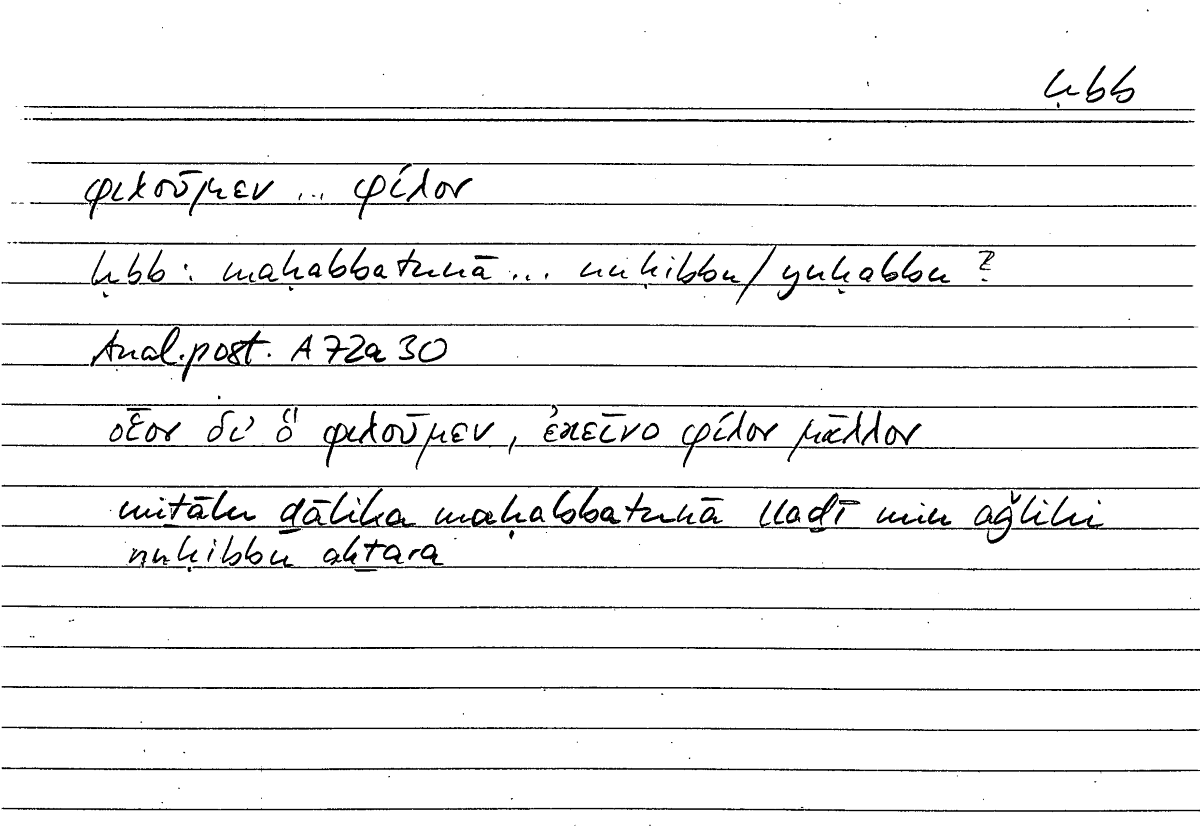 ḥbb
φιλοῦμεν ... φίλον
ḥbb: maḥabbatunā ... nuḥibbu/yuḥabbu ?
Anal.post. A 72a 30
οἷον δι' ὃ φιλοῦμεν, ἐκεῖνο φίλον μᾶλλον
miṯālu ḏālika maḥabbatunā llaḏī min aǧlihi
nuḥibbu akṯara